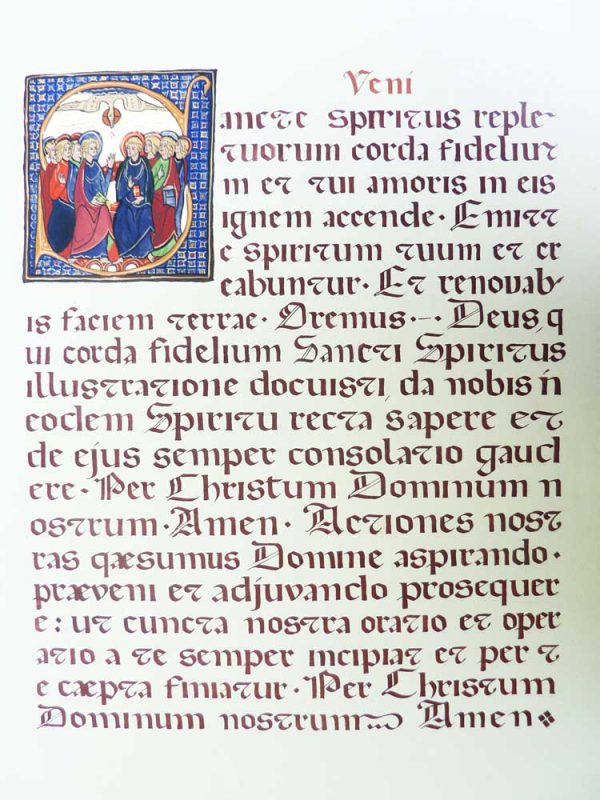 Veni
ancte Spiritus reple-
tuorum corda fideliu
m et tui amoris in eis
ignem accende. Emitt
e spiritum tuum et cr
eabuntur. Et renovab
is faciem terrae. Oremus.-. Deus, q
ui corda fidelium Sancti Spiritus
illustratione docuisti, da nobis in
eodem Spiritu recta sapere et
de ejus semper consolatio gaud
ere. Per Christum Dominum n
ostrum. Amen. Actiones nost
ras qæsumus Domine aspirando.
præveni et adjuvando prosequer
e: ut cuncta nostra oratio et oper
atio a te semper incipiat et per t
e cæpta finiatur. Per Christum
Dominum nostrum Amen